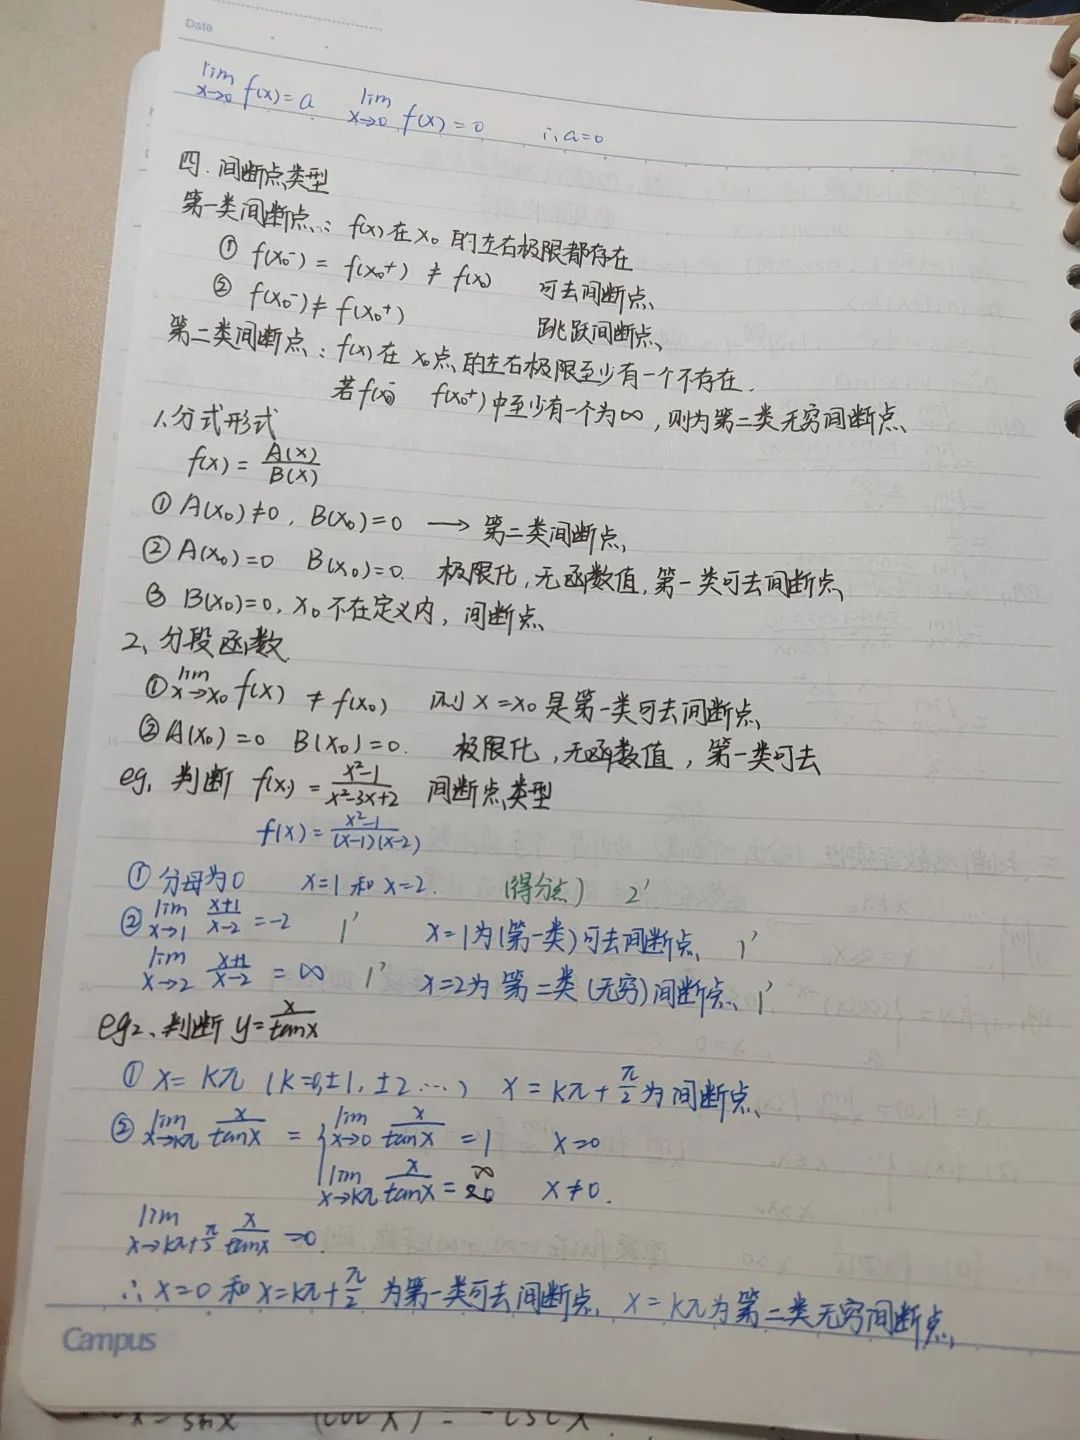 Date
lim x→0 f(x)=a    lim x→0 f(x)=0    ∴a=0
四.间断点类型
第一类间断点: f(x)在x₀的左右极限都存在
① f(x₀⁻) = f(x₀⁺) ≠ f(x₀)    可去间断点
② f(x₀⁻) ≠ f(x₀⁺)    跳跃间断点
第二类间断点: f(x)在x₀点的左右极限至少有一个不存在.
若f(x₀⁻) f(x₀⁺)中至少有一个为∞,则为第二类无穷间断点
1.分式形式
f(x) = A(x)/B(x)
① A(x₀)≠0, B(x₀)=0 ⟶ 第二类间断点
② A(x₀)=0 B(x₀)=0. 极限化,无函数值,第一类可去间断点
③ B(x₀)=0, x₀不在定义内,间断点
2、分段函数.
① lim x→x₀ f(x) ≠ f(x₀) 则x=x₀是第一类可去间断点
② A(x₀)=0 B(x₀)=0. 极限化,无函数值,第一类可去
eg1 判断 f(x) = (x²-1)/(x²-3x+2) 间断点类型
f(x) = (x²-1)/((x-1)(x-2))
① 分母为0 x=1和x=2. (得分点) 2′
② lim x→1 (x+1)/(x-2) = -2 1′ x=1为(第一类)可去间断点 1′
lim x→2 (x+1)/(x-2) = ∞ 1′ x=2为第二类(无穷)间断点 1′
eg2、判断 y = x/tanx
① x = kπ (k=0,±1,±2…) x = kπ+π/2 为间断点
② lim x→kπ x/tanx = { lim x→0 x/tanx = 1 x=0
lim x→kπ x/tanx = ∞ x≠0.
lim x→kπ+π/2 x/tanx =0.
∴ x=0 和 x=kπ+π/2 为第一类可去间断点, x=kπ为第二类无穷间断点
Campus